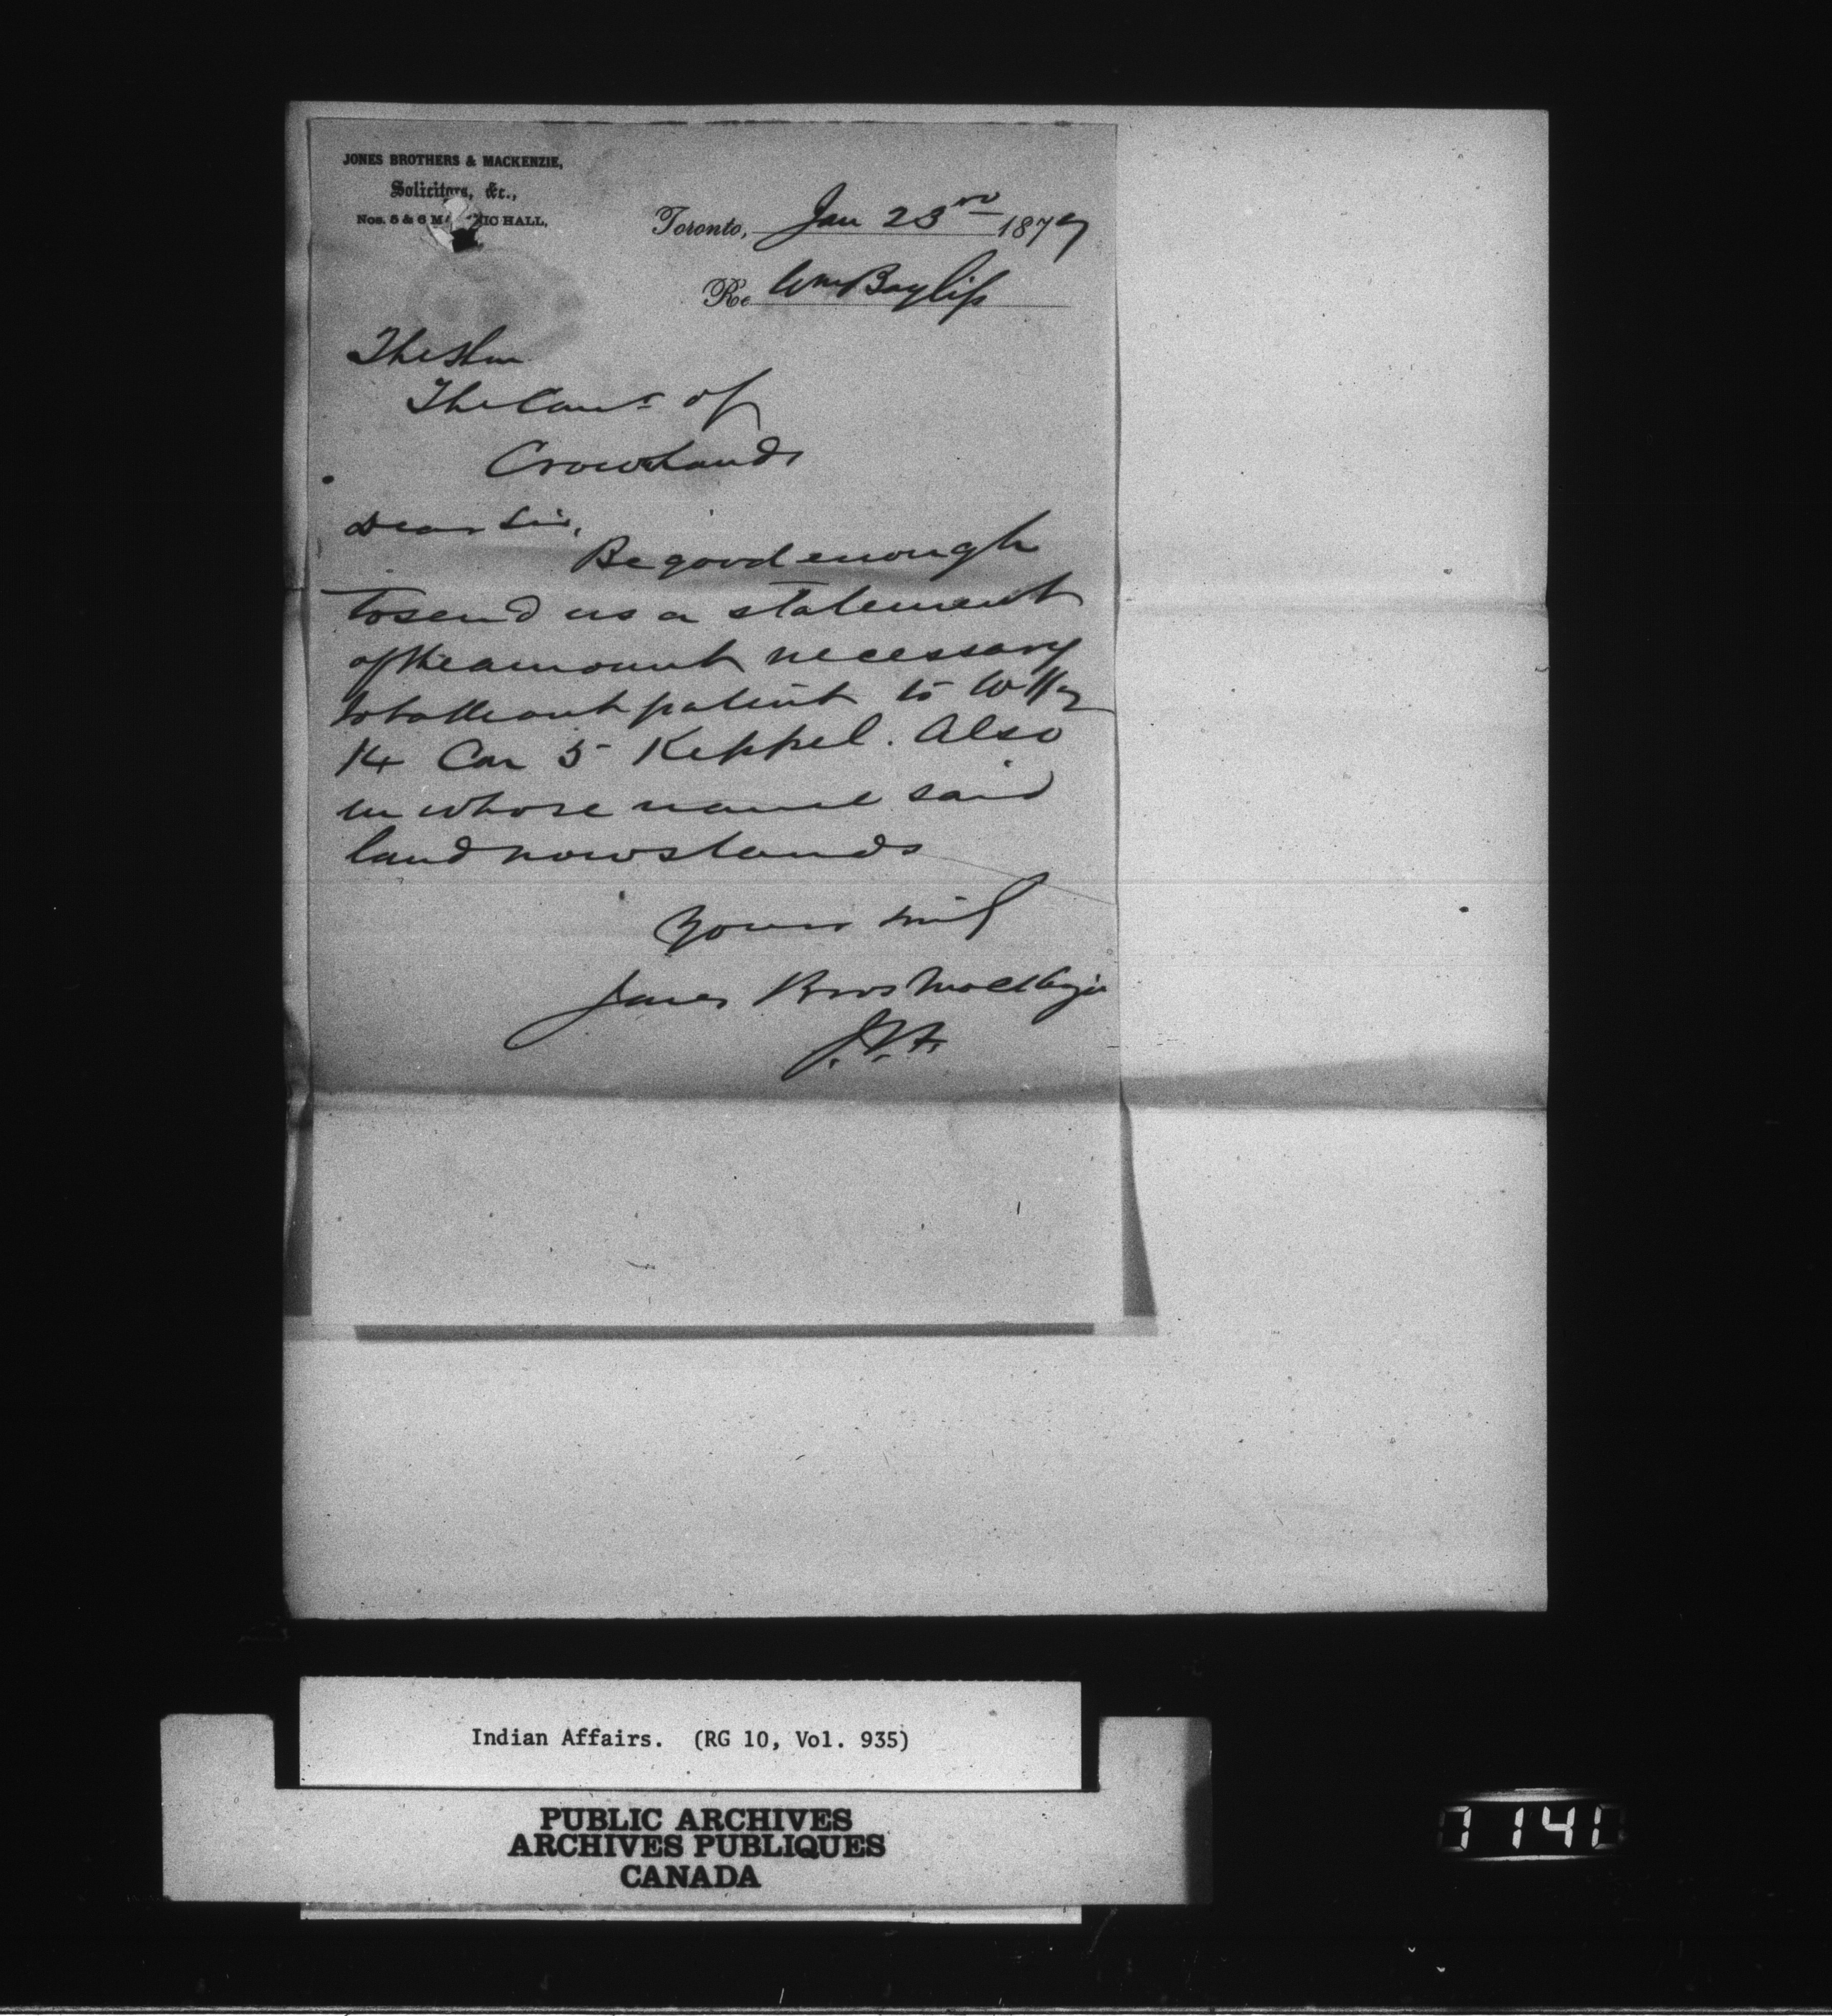 JONES BROTHERS & MACKENZIE,
Solicitors, &c.,
Nos. 5 & 6 MA IC HALL,
Toronto, Jan 23rd 1879
Re Wm Bayliss
The Hon
The Comr of
Crown Lands
Dear Sir,
Be good enough
to send us a statement
of the amount necessary
to take out patent to W 1/2
14 Con 5 Keppel. Also
in whose name said
land now stands
Yours truly
Jones Bros Mackenzie
Indian Affairs. (RG 10, Vol. 935)
PUBLIC ARCHIVES
ARCHIVES PUBLIQUES
CANADA